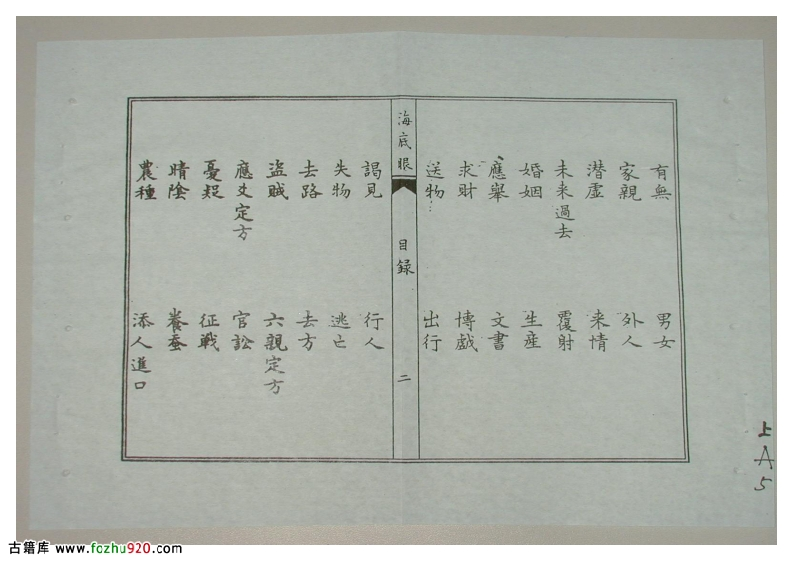 有無 男女
家親 外人
潜虚 来情
未来過去 覆射
婚姻 生産
應舉 文書
求財 博戯
送物 出行
海底眼 目録 二
謁見 行人
失物 逃亡
去路 去方
盗賊 六親定方
應爻定方 官訟
憂疑 征戰
晴陰 養蚕
農種 添人進口
上A5
古籍库 www.fozhu920.com